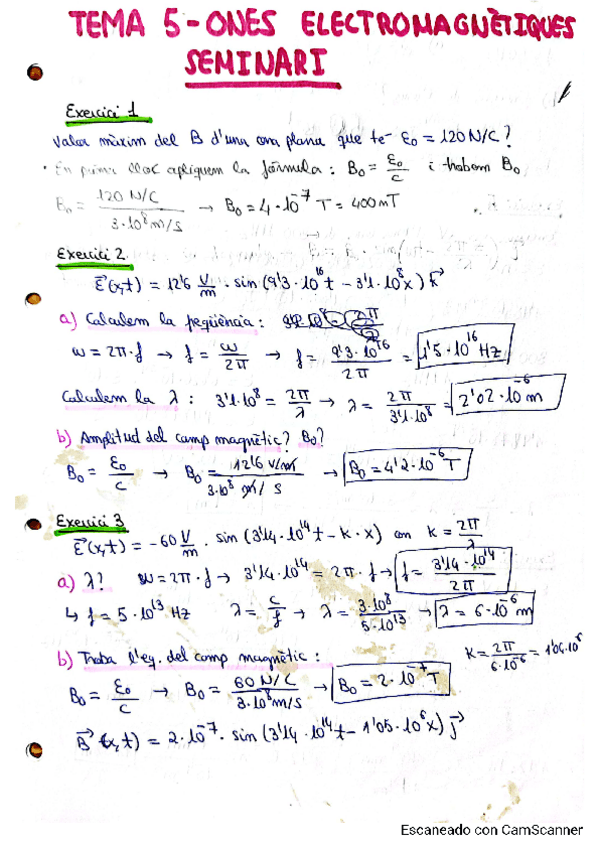 TEMA 5 - ONES ELECTROMAGNÈTIQUES
SEMINARI
Exercici 1
Valor màxim del B d'una ona plana que te- E₀ = 120 N/C?
• En primer lloc apliquem la fórmula: B₀ = E₀/c i trobem B₀
B₀ = 120 N/C / 3·10⁸ m/s → B₀ = 4·10⁻⁷ T = 400 mT
Exercici 2
E⃗(x,t) = 12'6 V/m · sin (9'3·10¹⁶ t - 3'1·10⁸ x) k⃗
a) Calculem la freqüència:
ω = 2π·f → f = ω/2π → f = 9'3·10¹⁶/2π = 1'5·10¹⁶ Hz
Calculem la λ: 3'1·10⁸ = 2π/λ → λ = 2π/3'1·10⁸ = 2'02·10⁻⁶ m
b) Amplitud del camp magnètic? B₀?
B₀ = E₀/c → B₀ = 12'6 V/m / 3·10⁸ m/s → B₀ = 4'2·10⁻⁶ T
Exercici 3
E⃗(x,t) = -60 V/m · sin (3'14·10¹⁴ t - k·x) on k = 2π/λ
a) λ? ω = 2π·f → 3'14·10¹⁴ = 2π·f → f = 3'14·10¹⁴/2π
↳ f = 5·10¹³ Hz λ = c/f → λ = 3·10⁸/5·10¹³ → λ = 6·10⁻⁶ m
b) Troba l'eq. del camp magnètic: K = 2π/6·10⁻⁶ = 1'05·10⁶
B₀ = E₀/c → B₀ = 60 N/C / 3·10⁸ m/s → B₀ = 2·10⁻⁷ T
B⃗(x,t) = 2·10⁻⁷ · sin (3'14·10¹⁴ t - 1'05·10⁶ x) j⃗
Escaneado con CamScanner